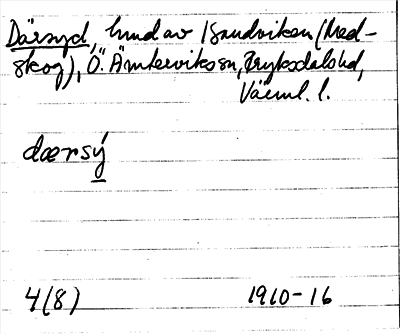 Därsyd, hmd av Sandviken (Med-
skog), Ö. Ämtervik sn, Fryksdals hd,
Värml. l.
dærsý
4(8) 1910-16